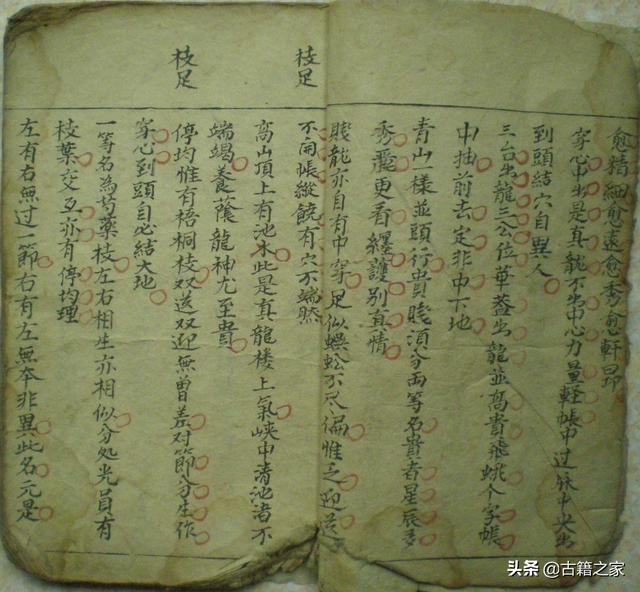 愈精細愈遠愈秀愈軒昂
穿心中出是真龍不出中心力量軽帳中过脉中央出
到頭結穴自異人
三台出龍三公位華蓋出龍並高貴飛蛾个字帳
中抽前去定非中下地
青山一樣並頭行貴賤須分両等名貴者星辰多
秀麗更看纏護别真情
賤龍亦自有中穿足似蜈蚣不尽偏惟乏迎送
不開帳縱饒有穴不端然
枝足
高山頂上有池水此是真龍楼上氣峽中清池渚不
端竭養蔭龍神尤至貴
枝足
停均惟有梧桐枝双送双迎無曽差对節分生作
穿心到頭自必結大地
一等名為芍藥枝左右相生亦相似分処光員有
枝葉交互亦有停均理
左有右無过一節右有左無本非異此名元是
头条 @古籍之家